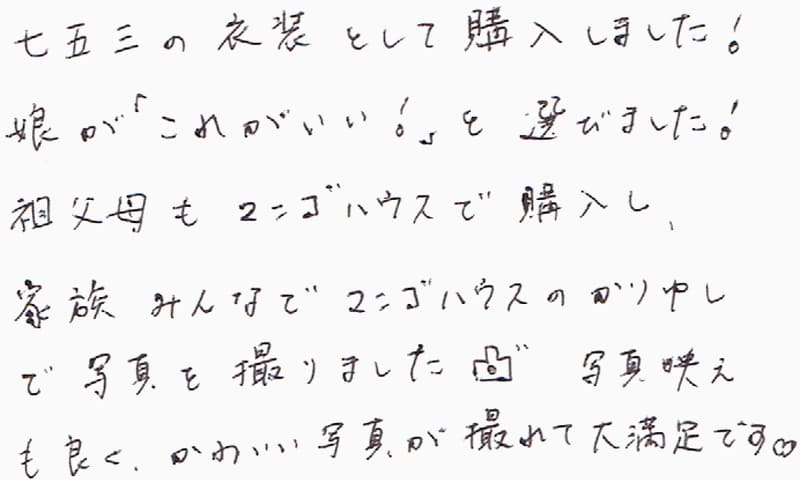 七五三の衣装として購入しました!
娘が「これがいい!」と選びました!
祖父母もマンゴハウスで購入し、
家族みんなでマンゴハウスのかりゆし
で写真を撮りました 写真映え
も良く、かわいい写真が撮れて大満足です